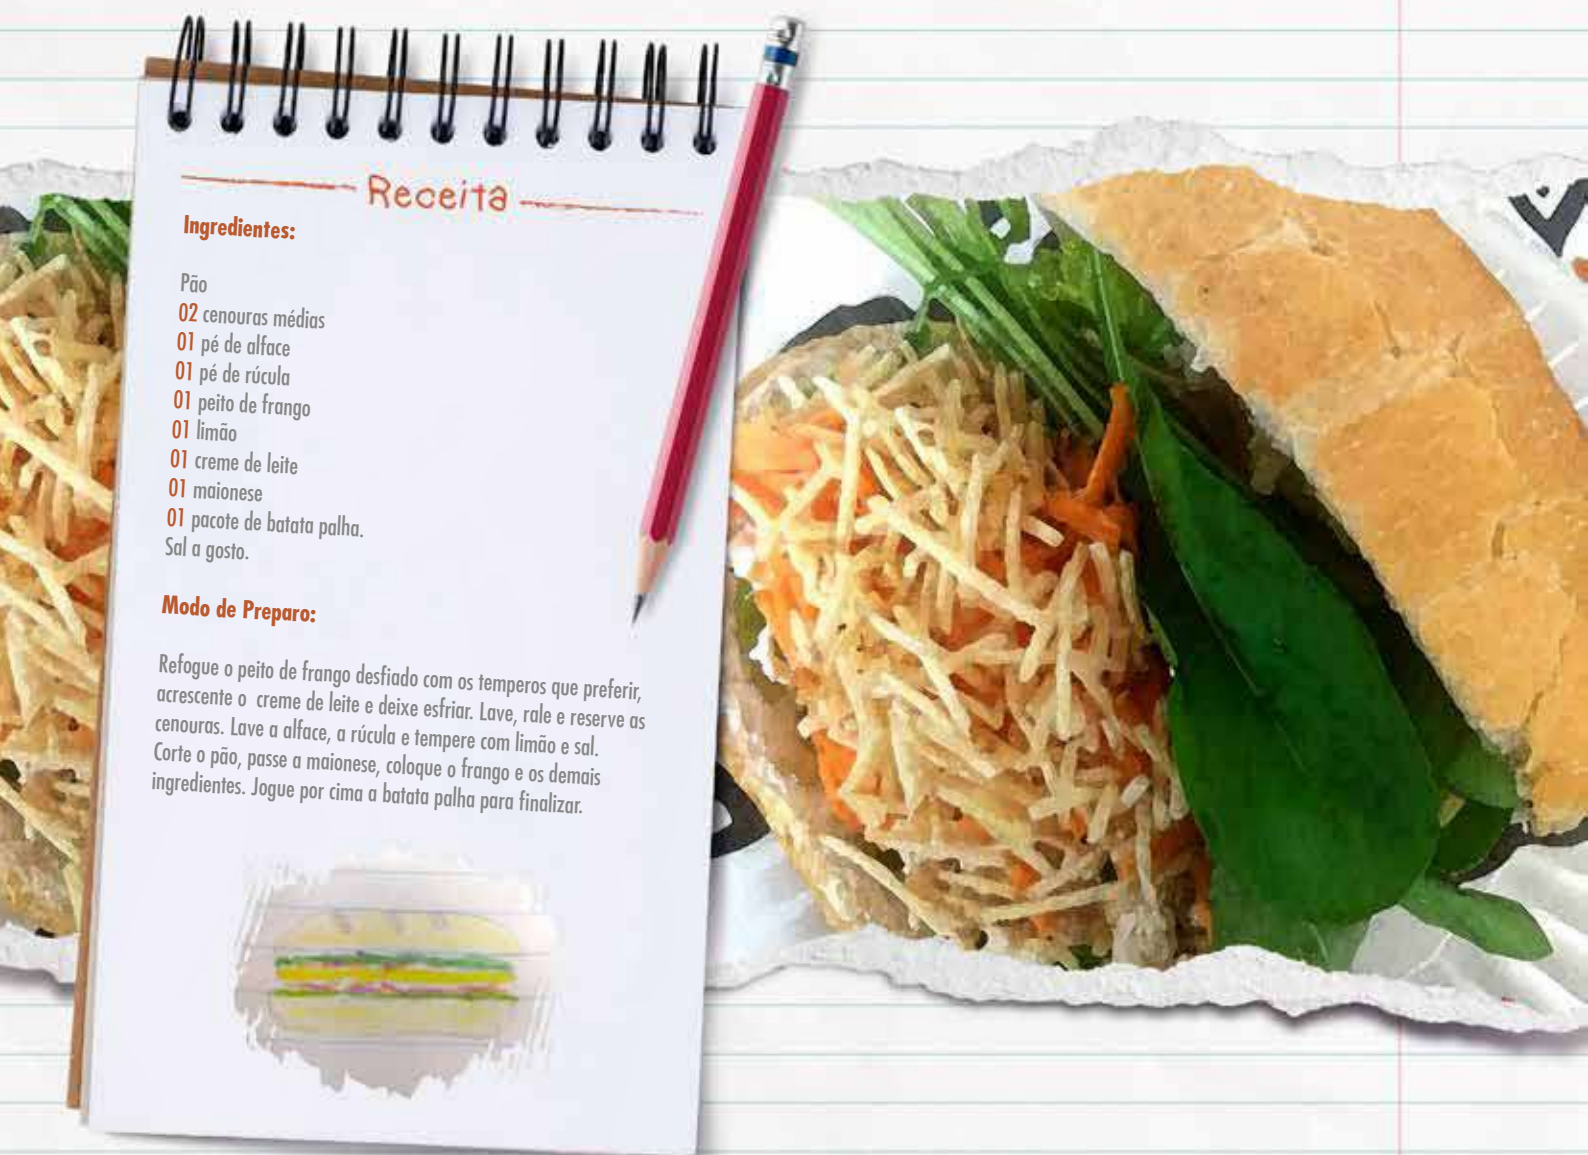 Receita
Ingredientes:
Pão
02 cenouras médias
01 pé de alface
01 pé de rúcula
01 peito de frango
01 limão
01 creme de leite
01 maionese
01 pacote de batata palha.
Sal a gosto.
Modo de Preparo:
Refogue o peito de frango desfiado com os temperos que preferir,
acrescente o  creme de leite e deixe esfriar. Lave, rale e reserve as
cenouras. Lave a alface, a rúcula e tempere com limão e sal.
Corte o pão, passe a maionese, coloque o frango e os demais
ingredientes. Jogue por cima a batata palha para finalizar.